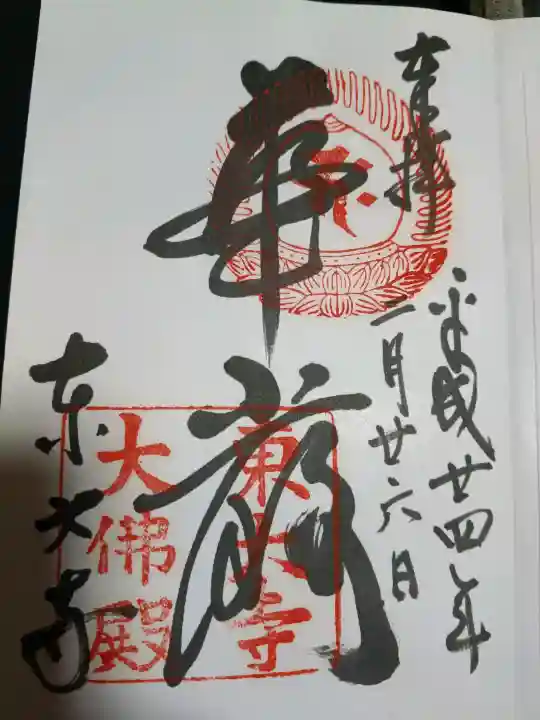 奉拝
平成廿四年
二月廿六日
華厳
東大寺
東大寺
大佛殿